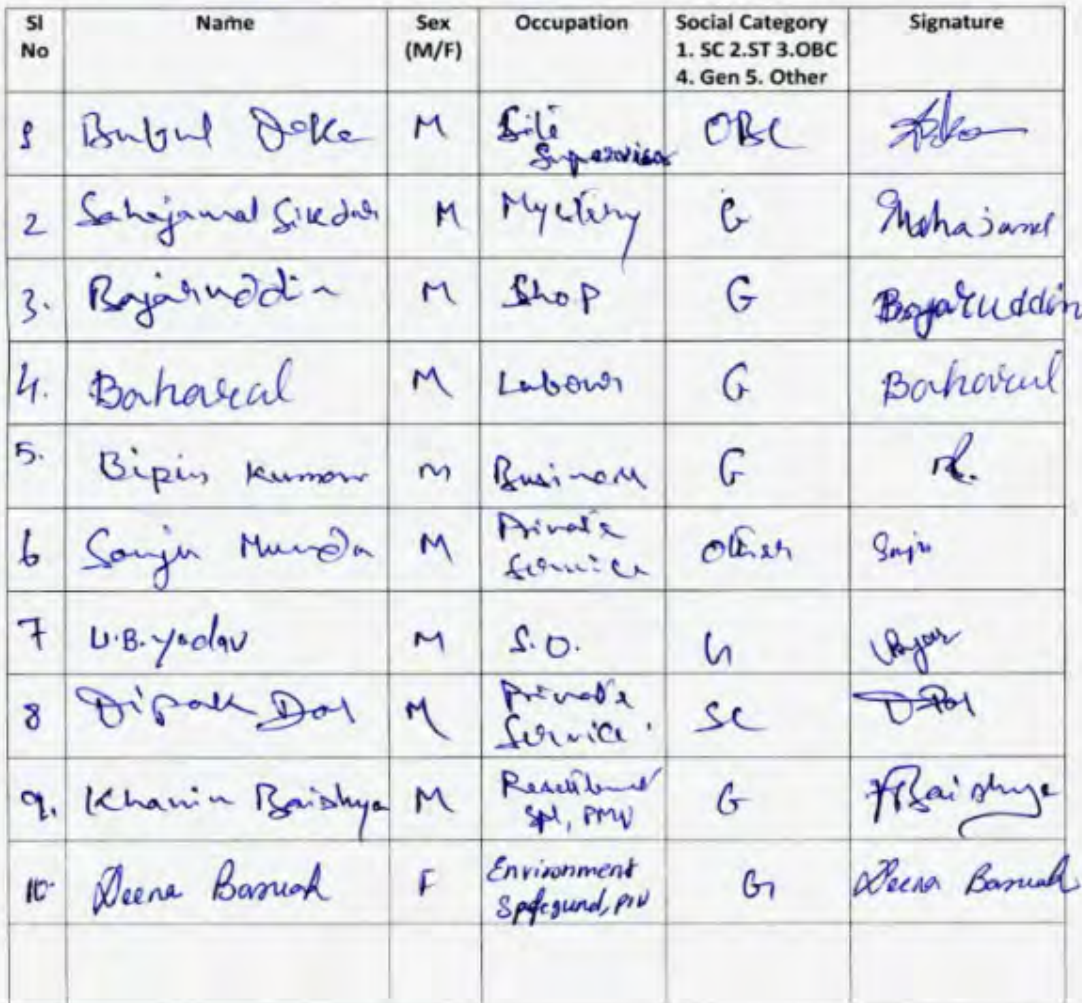 Sl No Name Sex (M/F) Occupation Social Category 1. SC 2.ST 3.OBC 4. Gen 5. Other Signature
1 Bubul Deka M Site Supervisor OBC
2 Sahajamal Sikdar M Mystery G
3. Bajaruddin M Shop G Bajaruddin
4. Baharul M Labour G Baharul
5. Bipin Kumar M Business G
6 Sanju Munda M Private Service Other Sanju
7 U.B. Yadav M S.O. G
8 Dipak Das M Private Service SC
9. Khanin Baishya M Resettlement Spl, PMU G Baishya
10 Deena Baruah F Environment Safeguard, PIU G Deena Baruah